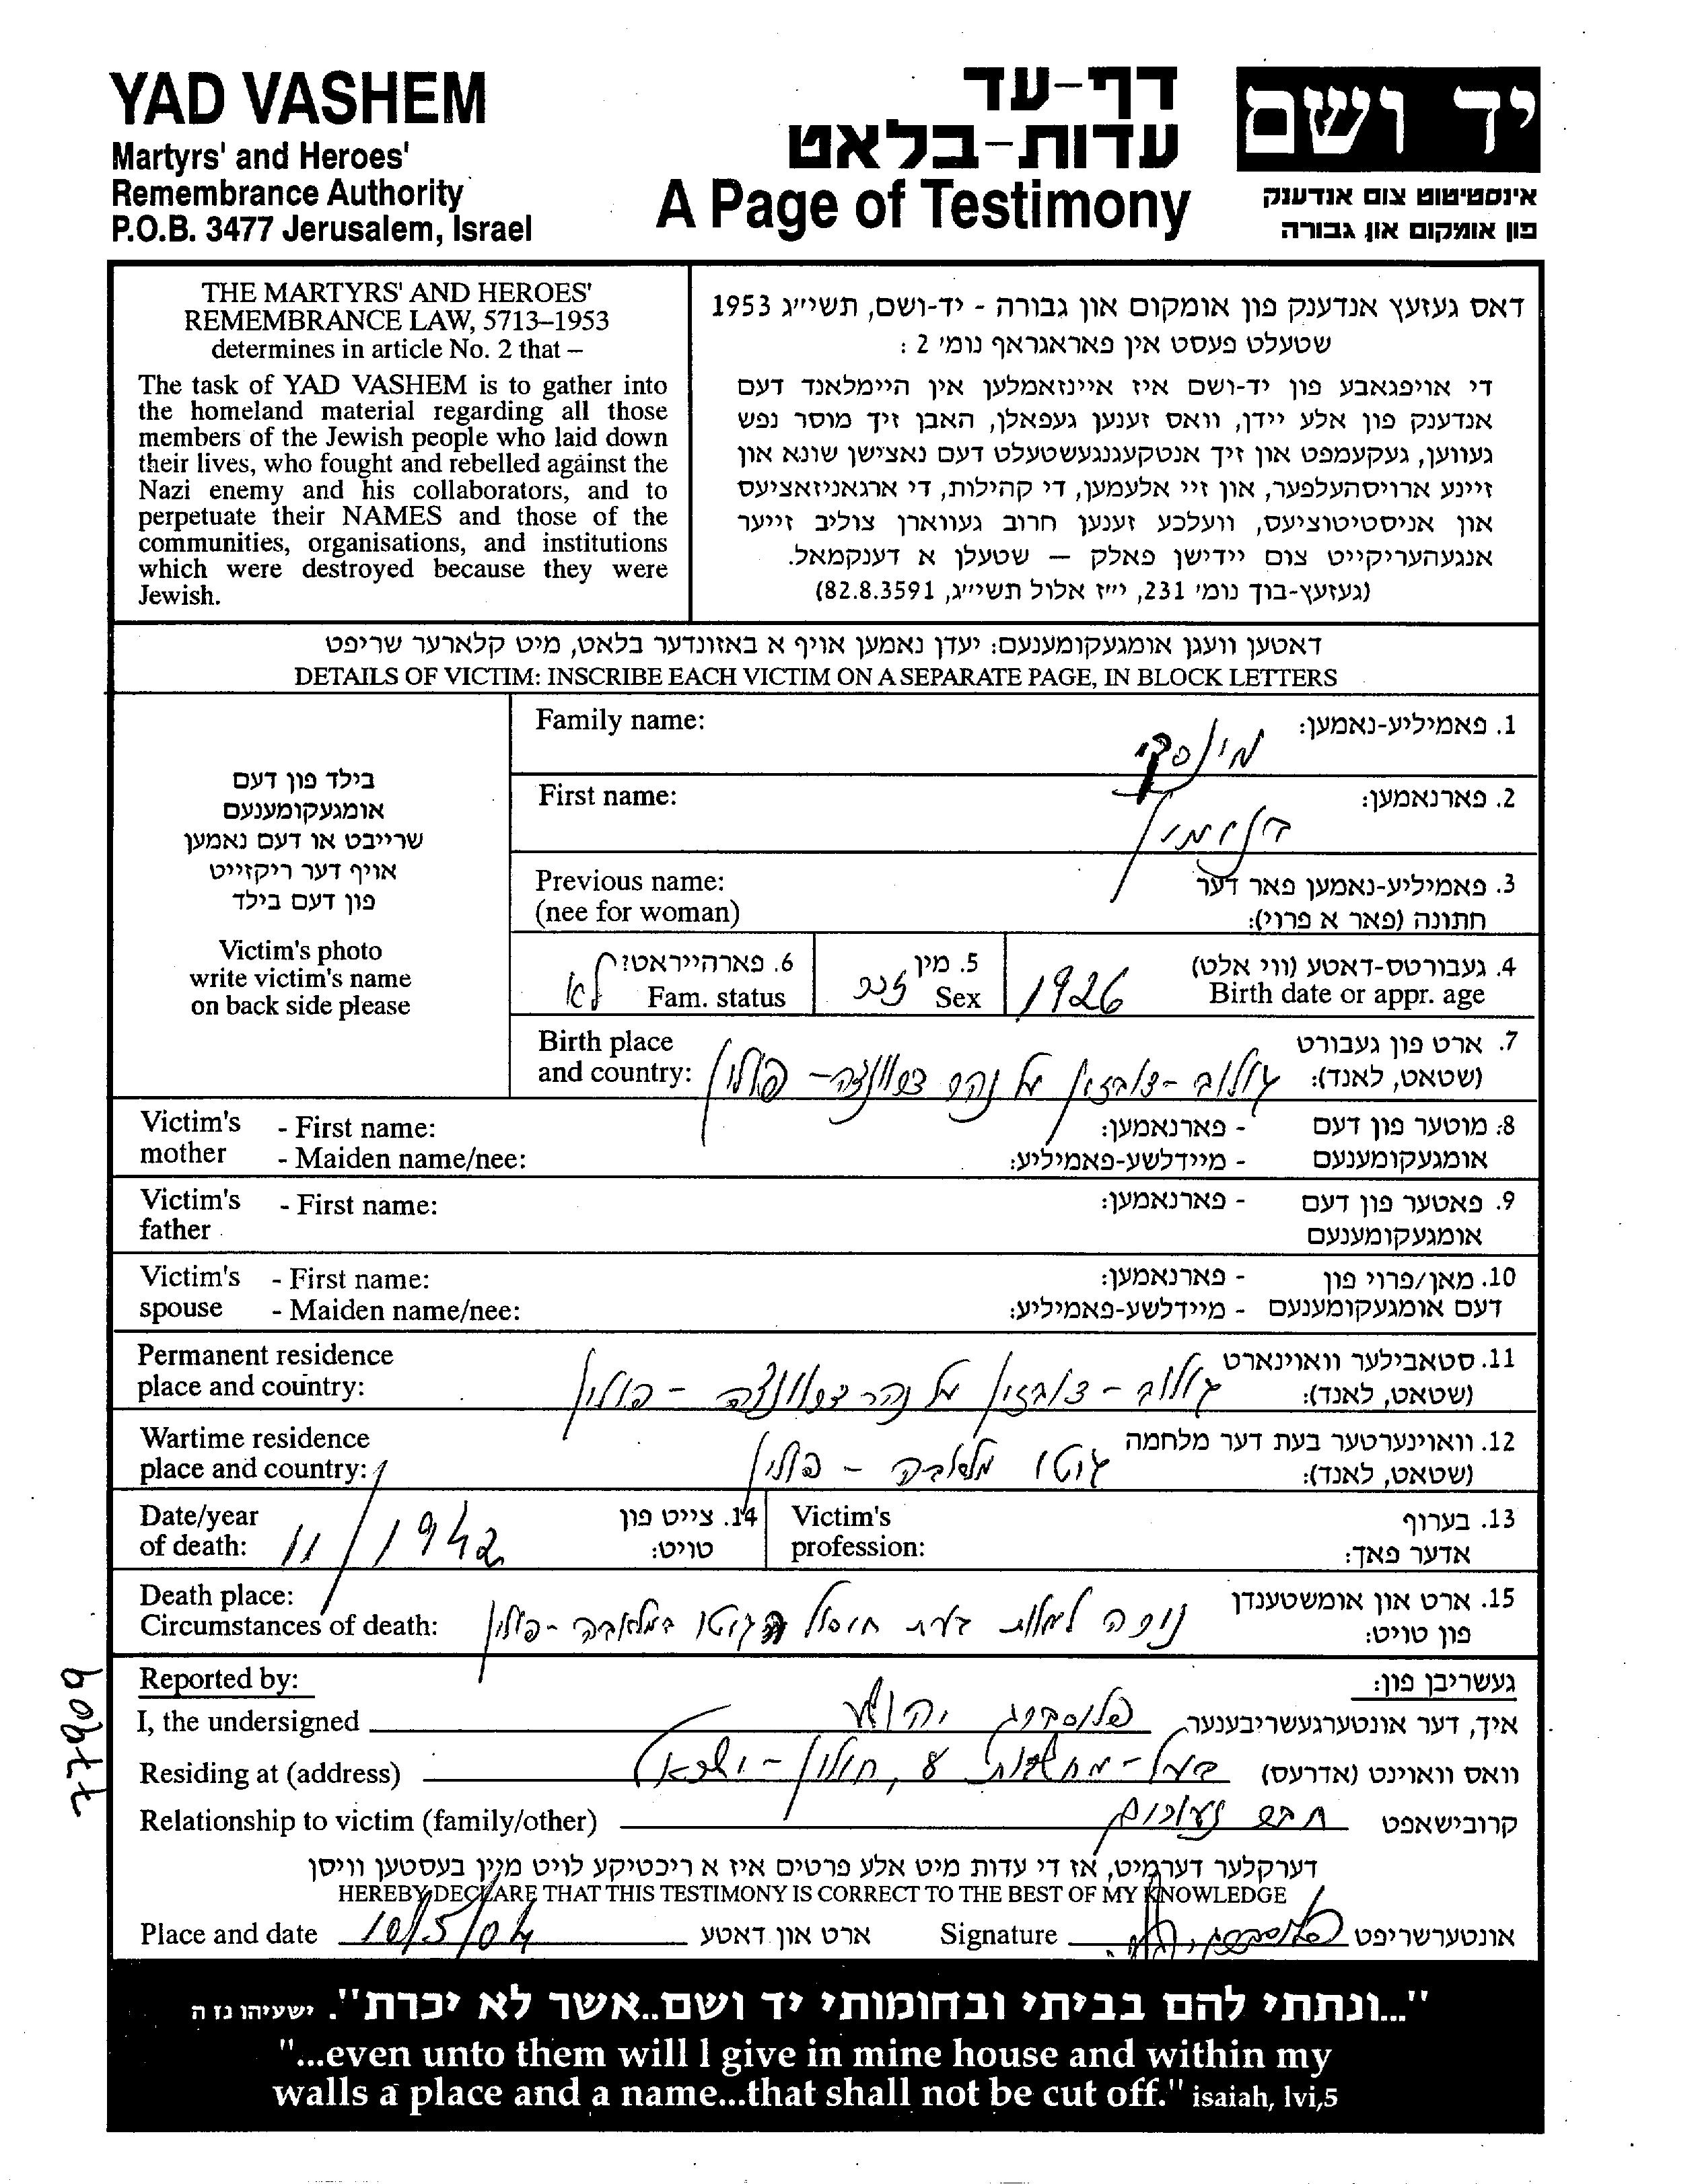 YAD VASHEM
Martyrs' and Heroes'
Remembrance Authority
P.O.B. 3477 Jerusalem, Israel
דף-עד
עדות-בלאט
A Page of Testimony
יד ושם
אינסטיטוט צום אנדענק
פון אומקום און גבורה
THE MARTYRS' AND HEROES'
REMEMBRANCE LAW, 5713–1953
determines in article No. 2 that –
The task of YAD VASHEM is to gather into
the homeland material regarding all those
members of the Jewish people who laid down
their lives, who fought and rebelled against the
Nazi enemy and his collaborators, and to
perpetuate their NAMES and those of the
communities, organisations, and institutions
which were destroyed because they were
Jewish.
דאס געזעץ אנדענק פון אומקום און גבורה - יד-ושם, תשי״ג 1953
שטעלט פעסט אין פאראגראף נומ׳ 2 :
די אויפגאבע פון יד-ושם איז איינזאמלען אין היימלאנד דעם
אנדענק פון אלע יידן, וואס זענען געפאלן, האבן זיך מוסר נפש
געווען, געקעמפט און זיך אנטקעגנגעשטעלט דעם נאצישן שונא און
זיינע ארויסהעלפער, און זיי אלעמען, די קהילות, די ארגאניזאציעס
און אניסטיטוציעס, וועלכע זענען חרוב געווארן צוליב זייער
אנגעהעריקייט צום יידישן פאלק – שטעלן א דענקמאל.
(געזעץ-בוך נומ׳ 231, י״ז אלול תשי״ג, 82.8.3591)
דאטען וועגן אומגעקומענעם: יעדן נאמען אויף א באזונדער בלאט, מיט קלארער שריפט
DETAILS OF VICTIM: INSCRIBE EACH VICTIM ON A SEPARATE PAGE, IN BLOCK LETTERS
בילד פון דעם
אומגעקומענעם
שרייבט או דעם נאמען
אויף דער ריקזייט
פון דעם בילד
Victim's photo
write victim's name
on back side please
Family name: מינסקי 1. פאמיליע-נאמען:
First name: בנימין 2. פארנאמען:
Previous name: 3. פאמיליע-נאמען פאר דער
(nee for woman) חתונה (פאר א פרוי):
6. פארהייראט? לא Fam. status
5. מין זכר Sex
4. געבורטס-דאטע (ווי אלט) 1926
Birth date or appr. age
Birth place 7. ארט פון געבורט
and country: גולוב - דוברזין על נהר דרוונצה - פולין (שטאט, לאנד):
Victim's - First name: - פארנאמען: 8. מוטער פון דעם
mother - Maiden name/nee: - מיידלשע-פאמיליע: אומגעקומענעם
Victim's - First name: - פארנאמען: 9. פאטער פון דעם
father אומגעקומענעם
Victim's - First name: - פארנאמען: 10. מאן/פרוי פון
spouse - Maiden name/nee: - מיידלשע-פאמיליע: דעם אומגעקומענעם
Permanent residence 11. סטאבילער וואוינארט
place and country: גולוב - דוברזין על נהר דרוונצה - פולין (שטאט, לאנד):
Wartime residence 12. וואוינערטער בעת דער מלחמה
place and country: גיטו מלאבה - פולין (שטאט, לאנד):
Date/year 14. צייט פון
of death: 11/1942 טויט:
Victim's 13. בערוף
profession: אדער פאך:
Death place: 15. ארט און אומשטענדן
Circumstances of death: נספה למוות בעת חוסל הגיטו במלאבה - פולין פון טויט:
Reported by: געשריבן פון:
I, the undersigned יהושע איך, דער אונטערגעשריבענער
Residing at (address) בעל-מחשבות 8, חולון - ישראל וואס וואוינט (אדרעס)
Relationship to victim (family/other) חבר נעורים קרובישאפט
דערקלער דערמיט, אז די עדות מיט אלע פרטים איז א ריכטיקע לויט מיין בעסטען וויסן
HEREBY DECLARE THAT THIS TESTIMONY IS CORRECT TO THE BEST OF MY KNOWLEDGE
Place and date 10/5/04 ארט און דאטע Signature אונטערשריפט
"...ונתתי להם בביתי ובחומותי יד ושם..אשר לא יכרת". ישעיהו נז ה
"...even unto them will I give in mine house and within my
walls a place and a name...that shall not be cut off." isaiah, lvi,5